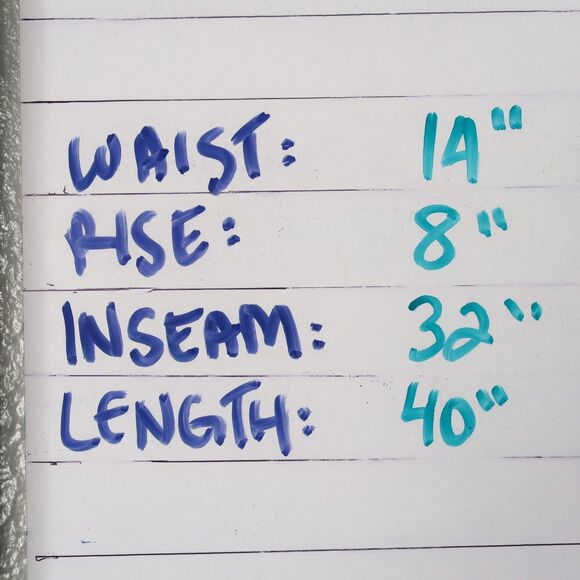 WAIST: 14"
RISE: 8"
INSEAM: 32"
LENGTH: 40"